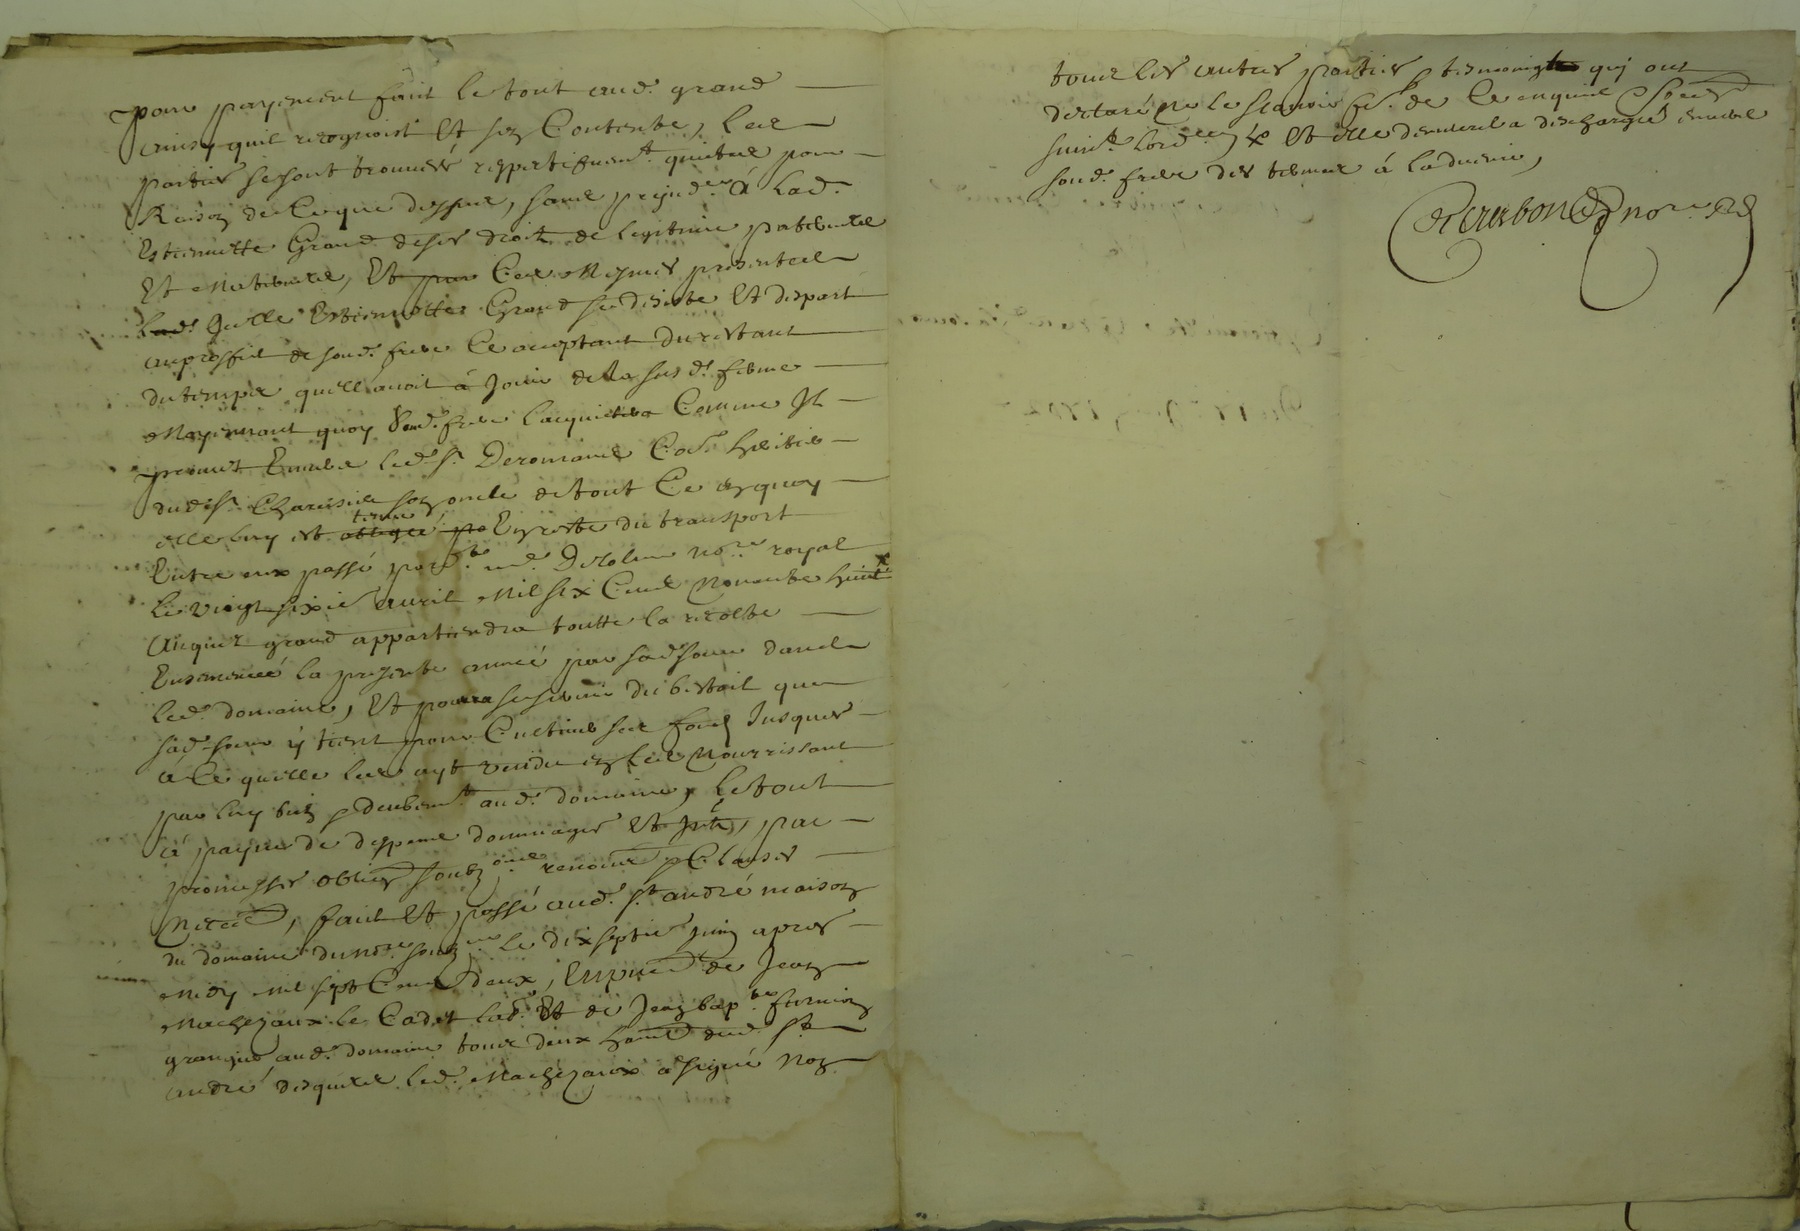 pour payement fait le tout aud. grand
ainsy quil recognoist et sen contente, les
parties se sont trouvées respectivement quittes pour
Raison de ce que dessus, sans prejud.ce à lad.
Estiennette Grand de ses droits de legitime paternelle
Et maternelle, Et par Ces mesmes presentes
lad. Jcelle Estiennettes Grand se desiste Et despart
au proffit de sond. frere Ce acceptant du restant
du temps quell avoit à Jouir de la susd. ferme
Moyennant quoy Sond. frere l'acquittera Comme Jl
promet Envers led. Sr. Deromans Coe. heritier
dud. Sr. Charessieu son oncle de tout Ce enquoy
elle luy est obligée tenue par En reste du transport
Entre eux passé par d. me. Desolme nore. royal
Le vingt sixie. avril Mil six Cens Nonante huict
Auquel grand appartiendra toutte la recolte
Ensemencé la presente année par sad. soeur dans
led. domaine, Et pourra se servir du bestail que
sad. soeur y tient pour Cultiver ses fonds Jusques
à Ce quelle les ayt vendu en les Nourrissant
par luy bien & deubemt. aud. domaine, Le tout
à payne de despens dommages Et Jnts, par
promesses oblign. soubzon. renonc. & Clauses
Necess., fait Et passé aud. St. andré maison
du domaine du nore. soubz.ne le dix septie. Juin apres
Midy mil sept Cens deux, En pnce. de Jean
Machezaux le Cadet lab. Et de Jean bap.te furnion
granger aud. domaine tous deux habt. dud. St.
André desquels led. Machezaux a signé Non
tous les autres parties & tesmoing qui ont
declaré ne le scavoir fe. de Ce enquis &
suivt. lord.ce X Et elle demeurera deschargée envers
sond. frere des termes à ladvenir,
nore. R.